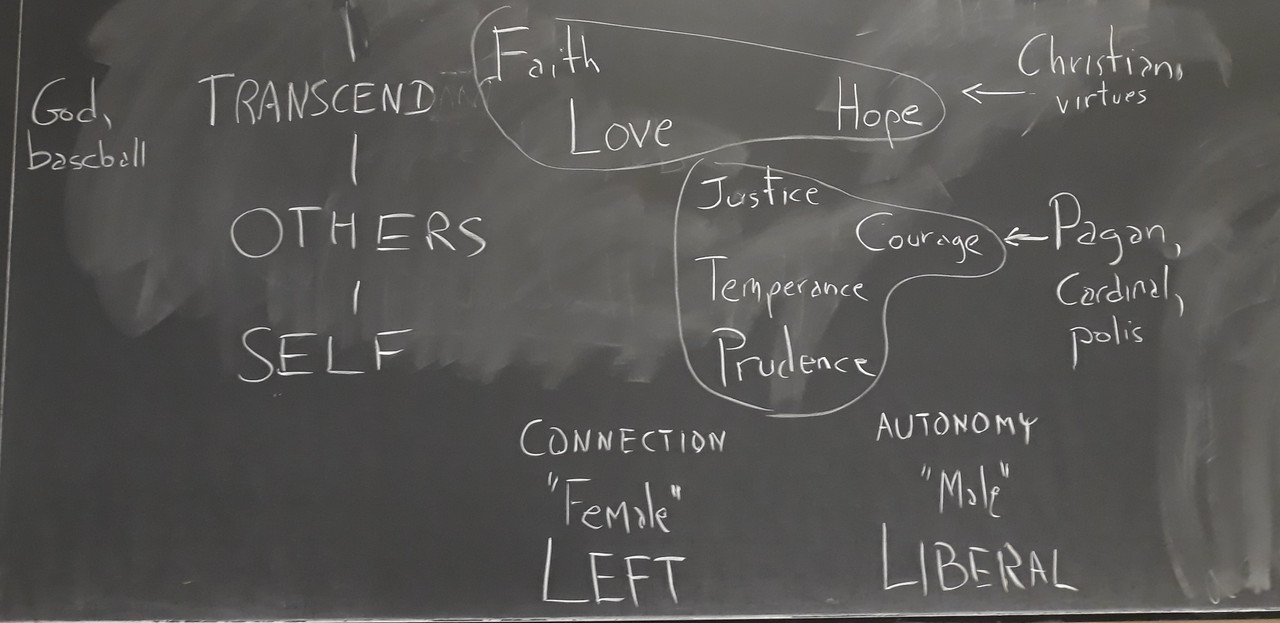 God,
baseball
TRANSCEND
OTHERS
SELF
Faith
Love
Hope
Christian,
virtues
Justice
Courage
Temperance
Prudence
Pagan,
Cardinal,
polis
CONNECTION
"Female"
LEFT
AUTONOMY
"Male"
LIBERAL